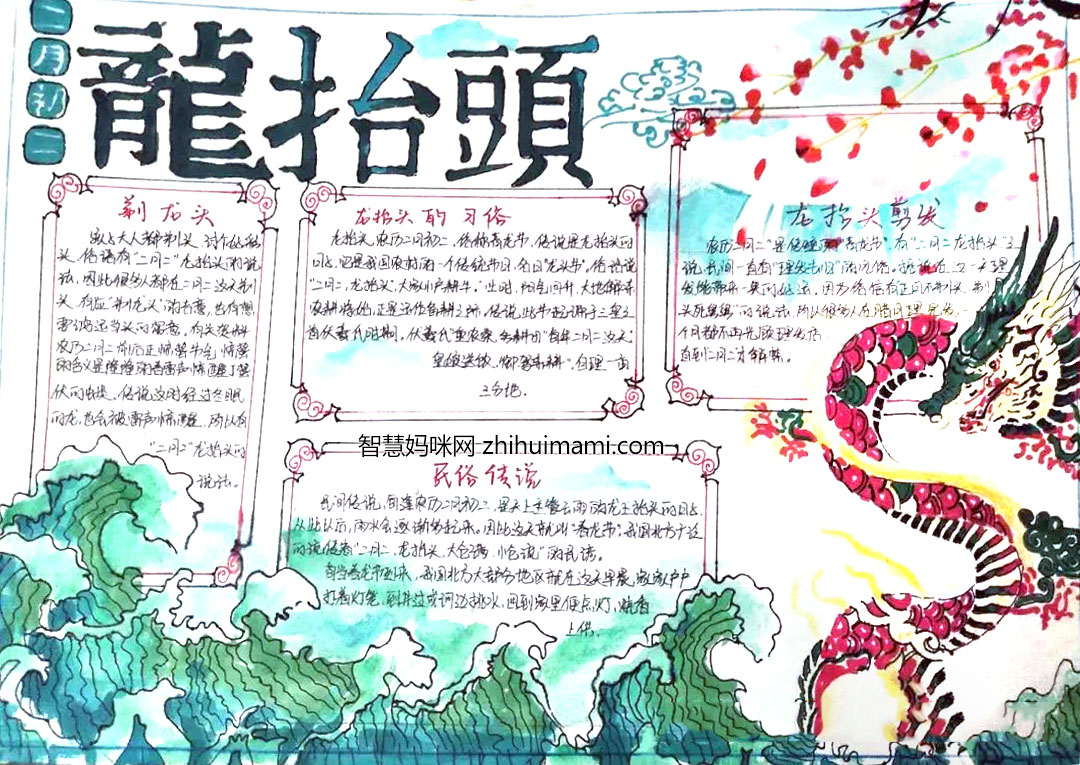 二月初二
龍抬頭
剃龙头
家长大人都剃头
头,俗语有“二月二”龙抬头的说
法,因此很多人都在二月二这天剃
头
农历二月二前后正师惊蛰
伏的虫类。传说这时经过冬眠
的龙,也会被雷声惊醒,所以有
“二月二”龙抬头的
说法。
龙抬头的习俗
龙抬头,农历二月初二,俗称青龙节,传说是龙抬头的
日子,它是我国农村的一个传统节日,名曰“龙头节”。俗话说
“二月二,龙抬头,大家小户耕牛。”此时,阳气回升,大地解冻
农耕将始,正是运作备耕之际。传说,此节起源于三皇之
首伏羲氏时期。伏羲氏“重农桑,务耕田”每年二月二这天
皇娘送饭,御驾亲耕”,自理一亩
三分地。
龙抬头剪发
有“二月二龙抬头”之
说,民间一直有“理发
发能带来一年的好运,因为
死舅舅”的说法,所以很多人在腊月理完发,一
个月都不再光顾理发店
直到二月二才解禁。
智慧妈咪网-zhihuimami.com
民俗传说
民间传说,每逢农历二月初二,是天上主管云雨的龙王抬头的日子,
从此以后,雨水会逐渐多起来,因此这天就叫“春龙节”。我国北方广泛
的流传着“二月二,龙抬头,大仓满,小仓流”的民谚。
每当春龙节到来,我国北方大部分地区就在这天早晨,家家户户
打着灯笼,到井边或河边挑水,回到家里便点灯,烧香
上供。